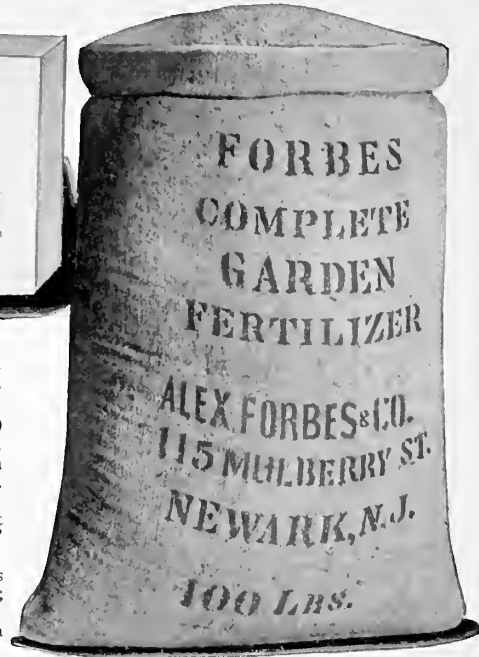 FORBES
COMPLETE
GARDEN
FERTILIZER
ALEX. FORBES & CO.
115 MULBERRY ST.
NEWARK, N.J.
100 LBS.